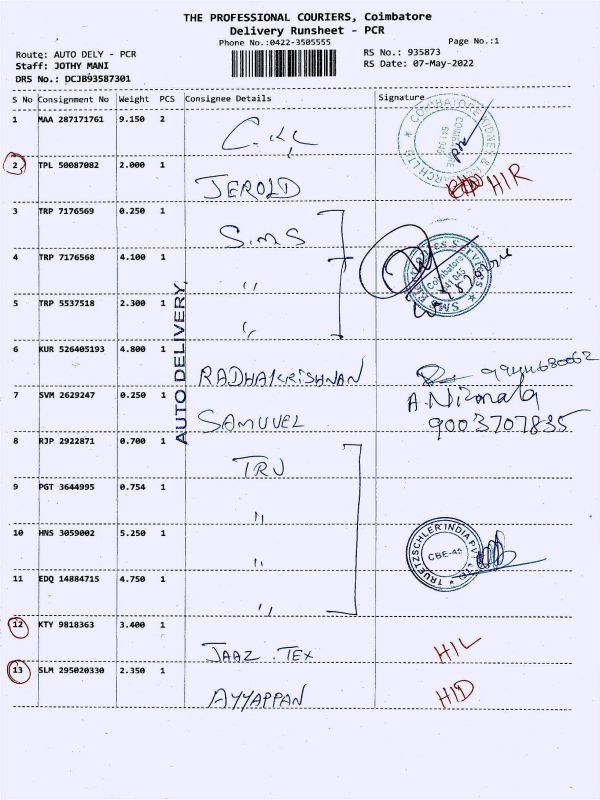 THE PROFESSIONAL COURIERS, Coimbatore
Delivery Runsheet - PCR
Phone No.:0422-3505555
Page No.:1
Route: AUTO DELY - PCR
RS No.: 935873
Staff: JOTHY MANI
RS Date: 07-May-2022
DRS No.: DCJB93587301
S No Consignment No Weight PCS Consignee Details Signature
1 MAA 287171761 9.150 2
2 TPL 50087082 2.000 1
JEROLD
HIR
3 TRP 7176569 0.250 1
S.M.S
4 TRP 7176568 4.100 1
"
5 TRP 5537518 2.300 1
"
AUTO DELIVERY,
6 KUR 526405193 4.800 1
RADHAKRISHNAN
9944680062
7 SVM 2629247 0.250 1
A. Nirmala
SAMUVEL
9003707835
8 RJP 2922871 0.700 1
TRU
9 PGT 3644995 0.754 1
"
10 HNS 3059002 5.250 1
"
TRUETZSCHLER INDIA PVT LTD
CBE-45
11 EDQ 14884715 4.750 1
"
12 KTY 9818363 3.400 1
JAAZ . TEX
HIL
13 SLM 295020330 2.350 1
AYYAPPAN
HID